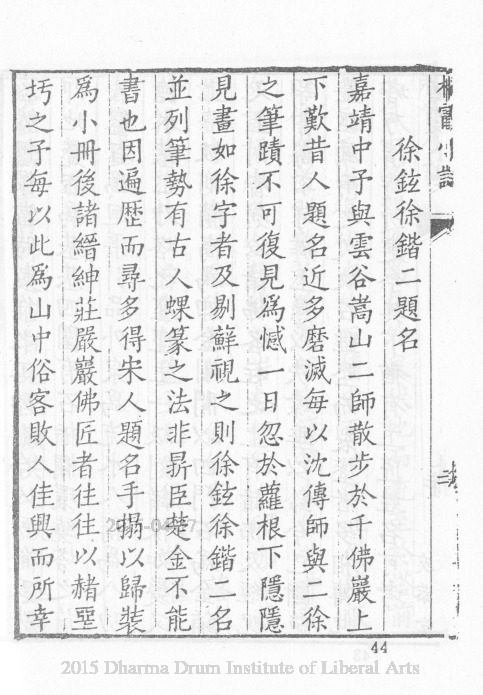 徐鉉徐鍇二題名
嘉靖中予與雲谷嵩山二師散步於千佛巖上
下歎昔人題名近多磨滅每以沈傳師與二徐
之筆蹟不可復見爲憾一日忽於蘿根下隱隱
見畫如徐字者及剔蘚視之則徐鉉徐鍇二名
並列筆勢有古人螺篆之法非鼎臣楚金不能
書也因遍歴而尋多得宋人題名手搨以歸裝
爲小冊後諸縉紳莊嚴巖佛匠者往往以赭堊
圬之予每以此爲山中俗客敗人佳興而所幸
44
2015 Dharma Drum Institute of Liberal Arts